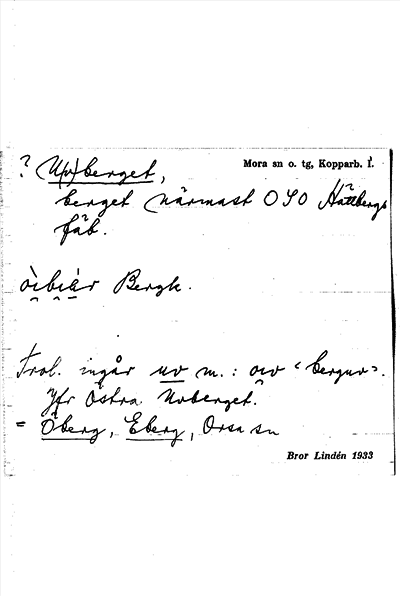 Mora sn o. tg, Kopparb. l.
? U(v)berget,
berget (närmast OSO Hättbergs
fäb.
òibiàr Bergk.
Trol. ingår uv m. : ow "berguv".
Jfr Östra Uvberget.
= Öberg, Eberg, Orsa sn
Bror Lindén 1933